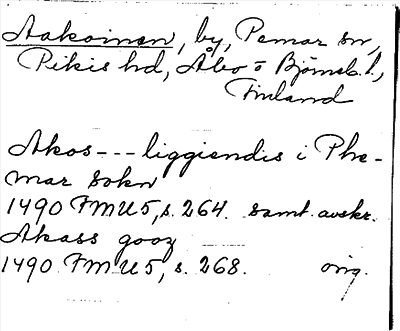 Aakoinen, by, Pemar sn,
Pikis hd, Åbo o Björneb. l.,
Finland
Akos --- liggiendis i Phe-
mar Sokn
1490 FMU5, s. 264. samt. avskr.
Akass gooz
1490 FMU5, s. 268. orig.